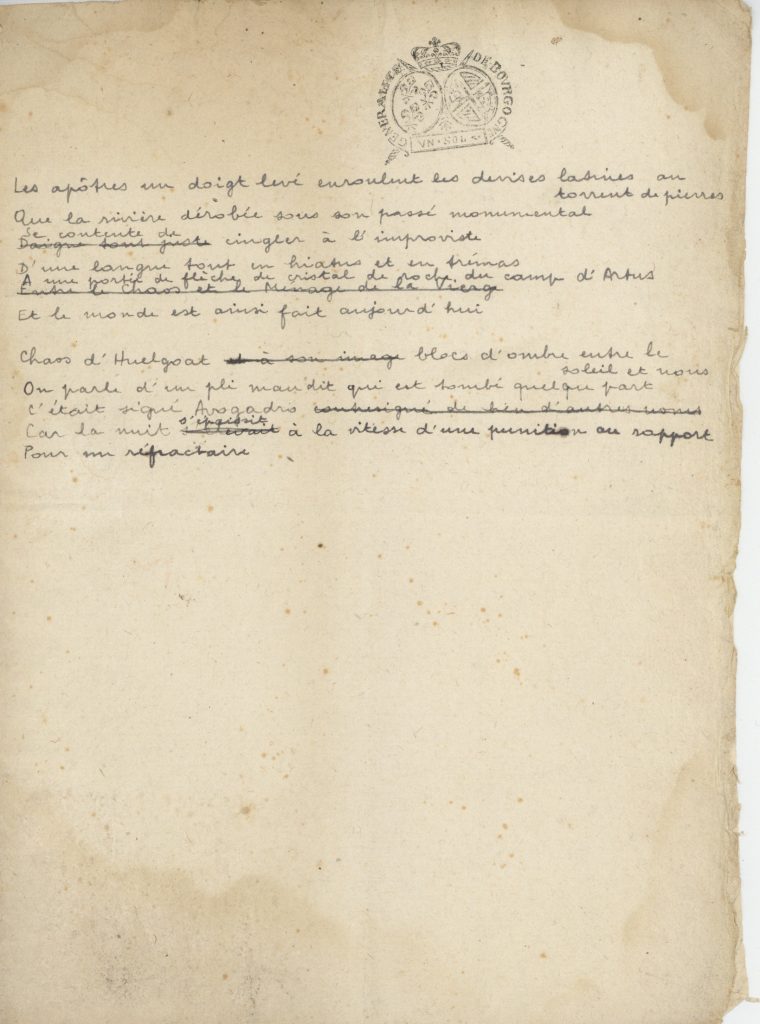 GENERALITE DE BOVRGOGNE
VN SOL
Les apôtres un doigt levé enroulent les devises latines au
torrent de pierres
Que la rivière dérobée sous son passé monumental
Se contente de
Daigne tout juste cingler à l'improviste
D'une langue tout en hiatus et en trémas
A une portée de flèche de cristal de roche du camp d'Artus
Entre le Chaos et le Ménage de la Vierge
Et le monde est ainsi fait aujourd'hui
Chaos d'Huelgoat et à son image blocs d'ombre entre le
soleil et nous
On parle d'un pli maudit qui est tombé quelque part
C'était signé Avogadro contresigné de bien d'autres noms
s'épaissit
Car la nuit à la vitesse d'une punition au rapport
Pour un réfractaire